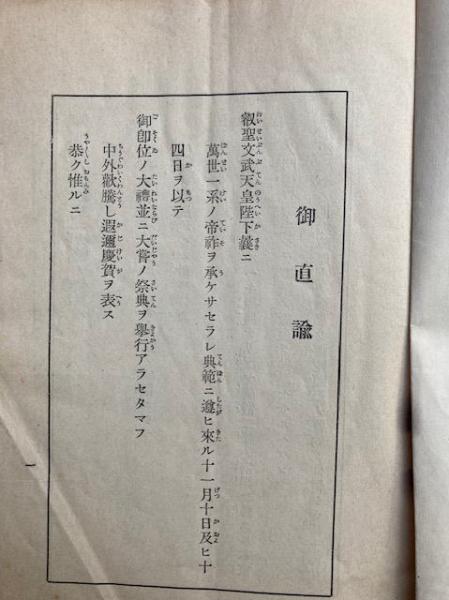 御直諭
叡聖文武天皇陛下曩ニ
萬世一系ノ帝祚ヲ承ケサセラレ典範ニ遵ヒ來ル十一月十日及ヒ十
四日ヲ以テ
御卽位ノ大禮並ニ大嘗ノ祭典ヲ擧行アラセタマフ
中外歡騰し遐邇慶賀ヲ表ス
恭ク惟ルニ
一